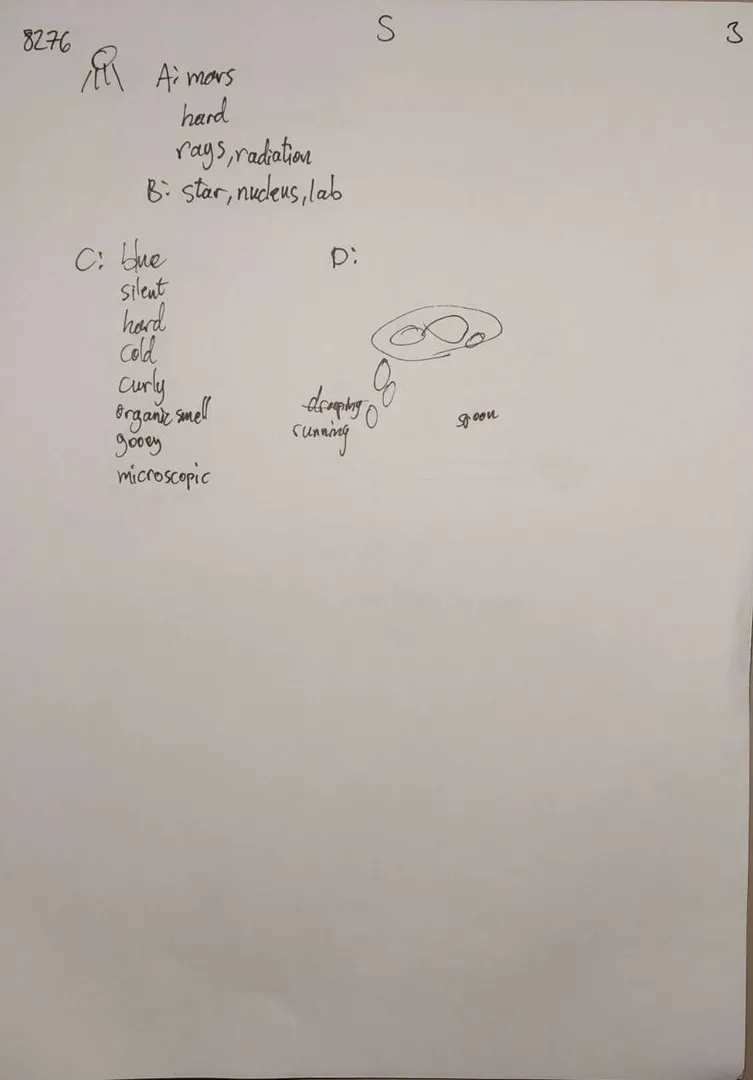 8276
S
3
A: mars
hard
rays, radiation
B: star, nucleus, lab
C: blue
silent
hard
cold
curly
organic smell
gooey
microscopic
D:
drooping
running
spoon